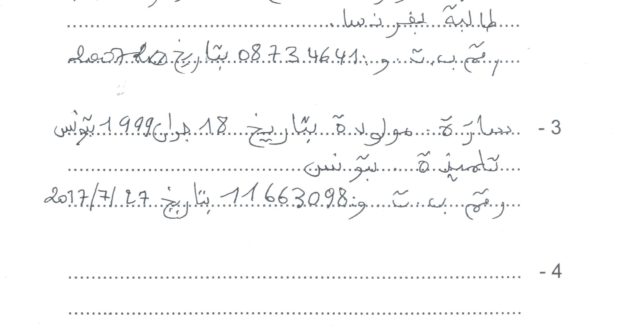 طالبة بفرنسا.
رقم ب.ت.و: 08734641 بتاريخ
3 - سارة مولودة بتاريخ 18 جوان 1999 بتونس
تلميذة بتونس
رقم ب.ت.و: 11663098 بتاريخ 2017/7/27
4 -